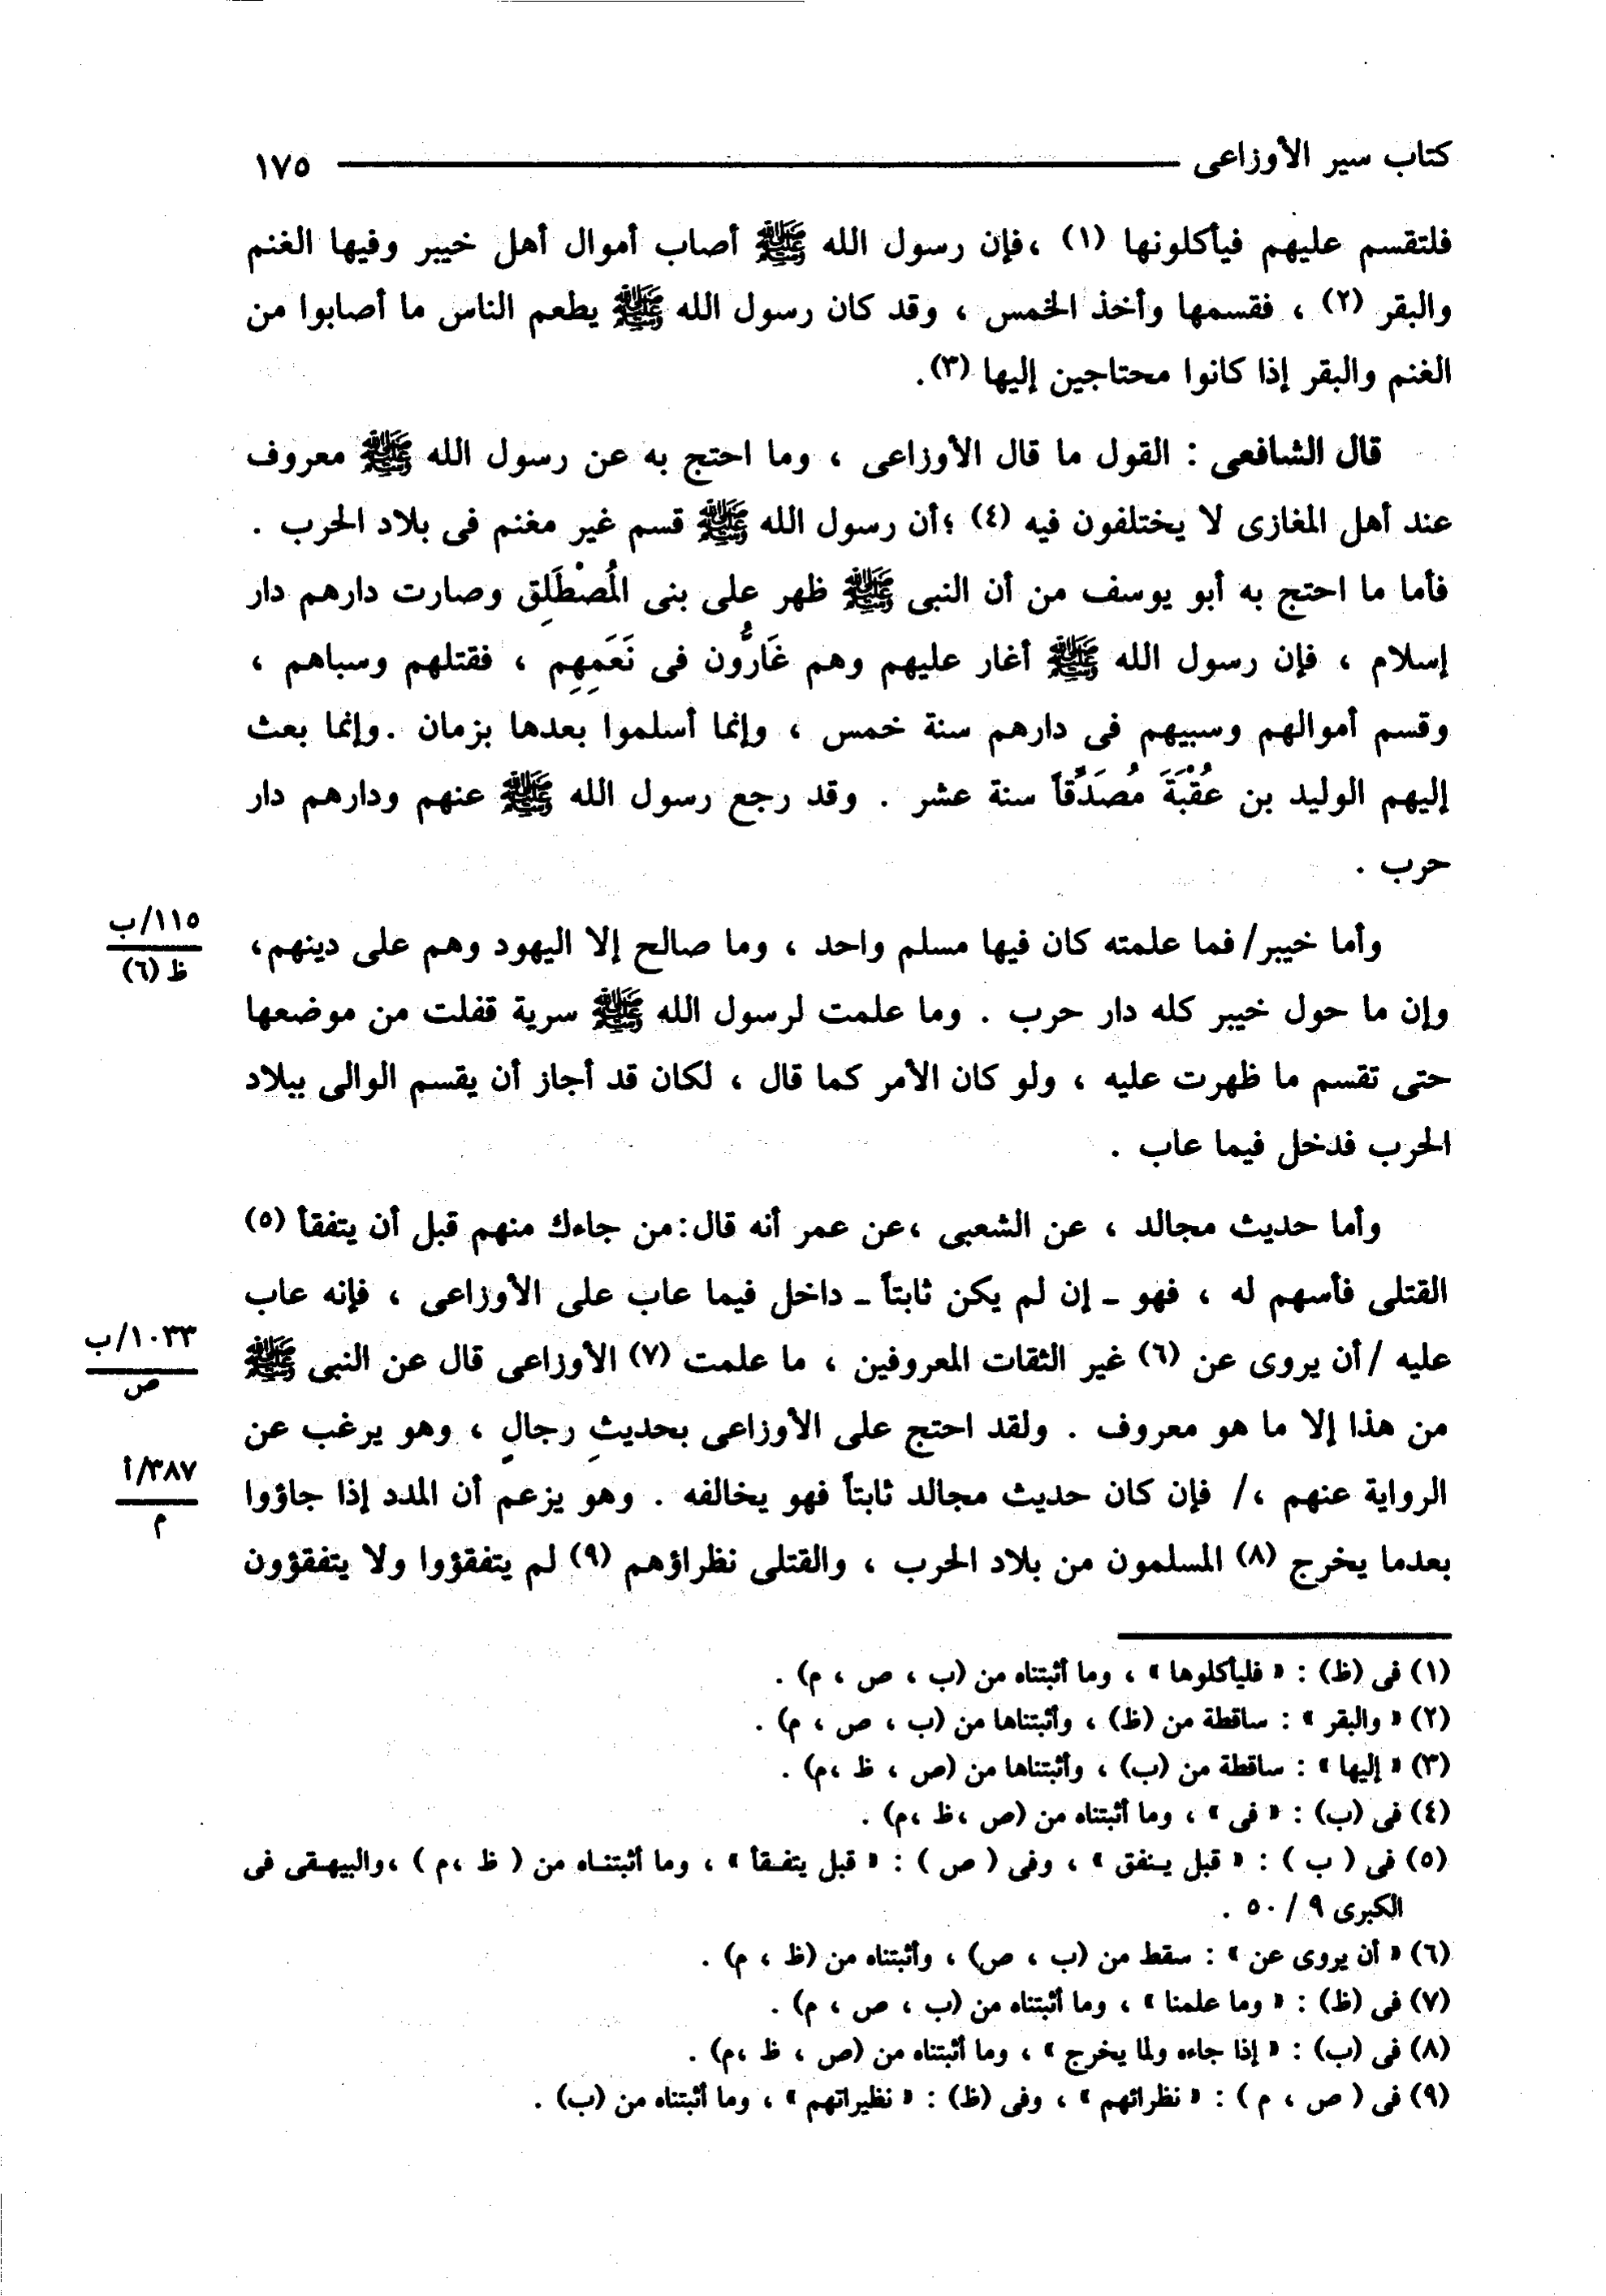 كتاب سير الأوزاعى ١٧٥
فلتقسم عليهم فيأكلونها (١) ،فإن رسول الله ﷺ أصاب أموال أهل خيبر وفيها الغنم
والبقر (٢) ، فقسمها وأخذ الخمس ، وقد كان رسول الله ﷺ يطعم الناس ما أصابوا من
الغنم والبقر إذا كانوا محتاجين إليها (٣).
قال الشافعى : القول ما قال الأوزاعى ، وما احتج به عن رسول الله ﷺ معروف
عند أهل المغازى لا يختلفون فيه (٤) ؛أن رسول الله ﷺ قسم غير مغنم فى بلاد الحرب .
فأما ما احتج به أبو يوسف من أن النبى ﷺ ظهر على بنى المُصْطَلِق وصارت دارهم دار
إسلام ، فإن رسول الله ﷺ أغار عليهم وهم غَارُّون فى نَعَمِهِم ، فقتلهم وسباهم ،
وقسم أموالهم وسبيهم فى دارهم سنة خمس ، وإنما أسلموا بعدها بزمان .وإنما بعث
إليهم الوليد بن عُقْبَةَ مُصَدِّقاً سنة عشر . وقد رجع رسول الله ﷺ عنهم ودارهم دار
حرب .
وأما خيبر/ فما علمته كان فيها مسلم واحد ، وما صالح إلا اليهود وهم على دينهم،
١١٥/ب
ظ (٦)
وإن ما حول خيبر كله دار حرب . وما علمت لرسول الله ﷺ سرية قفلت من موضعها
حتى تقسم ما ظهرت عليه ، ولو كان الأمر كما قال ، لكان قد أجاز أن يقسم الوالى ببلاد
الحرب فدخل فيما عاب .
وأما حديث مجالد ، عن الشعبى ،عن عمر أنه قال:من جاءك منهم قبل أن يتفقأ (٥)
القتلى فأسهم له ، فهو ـ إن لم يكن ثابتاً ـ داخل فيما عاب على الأوزاعى ، فإنه عاب
عليه /أن يروى عن (٦) غير الثقات المعروفين ، ما علمت (٧) الأوزاعى قال عن النبى ﷺ
١٠٣٣/ب
ص
من هذا إلا ما هو معروف . ولقد احتج على الأوزاعى بحديثِ رجالٍ ، وهو يرغب عن
الرواية عنهم ،/ فإن كان حديث مجالد ثابتاً فهو يخالفه . وهو يزعم أن المدد إذا جاؤوا
٣٨٧/أ
م
بعدما يخرج (٨) المسلمون من بلاد الحرب ، والقتلى نظراؤهم (٩) لم يتفقؤوا ولا يتفقؤون
(١) فى (ظ) : « فليأكلوها » ، وما أثبتناه من (ب ، ص ، م) .
(٢) « والبقر » : ساقطة من (ظ) ، وأثبتناها من (ب ، ص ، م) .
(٣) « إليها » : ساقطة من (ب) ، وأثبتناها من (ص ، ظ ،م) .
(٤) فى (ب) : « فى » ، وما أثبتناه من (ص ،ظ ،م) .
(٥) فى ( ب ) : « قبل ينفق » ، وفى ( ص ) : « قبل يتفقأ » ، وما أثبتناه من ( ظ ،م ) ،والبيهقى فى
الكبرى ٩ / ٥٠ .
(٦) « أن يروى عن » : سقط من (ب ، ص) ، وأثبتناه من (ظ ، م) .
(٧) فى (ظ) : « وما علمنا » ، وما أثبتناه من (ب ، ص ، م) .
(٨) فى (ب) : « إذا جاءه ولما يخرج » ، وما أثبتناه من (ص ، ظ ،م) .
(٩) فى ( ص ، م ) : « نظرائهم » ، وفى (ظ) : « نظيراتهم » ، وما أثبتناه من (ب) .